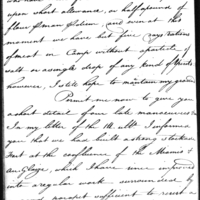 upon what allowance, or half a pound of
flour
and even at this
moment we have but five days rations
of meat in Camp without a particle of
salt or a single drop of any kind of spirits
however, I still hope to maintain my ground
Permit me now to give you
a short detail of our late manoeuvres
In my letter of the 14 ulto I informed
you that we had built a strong stockade
Fort at the confluence of the Miamis &
Au Glaize, which I have since improved
into a regular work surrounded by
parapet sufficient to resist a